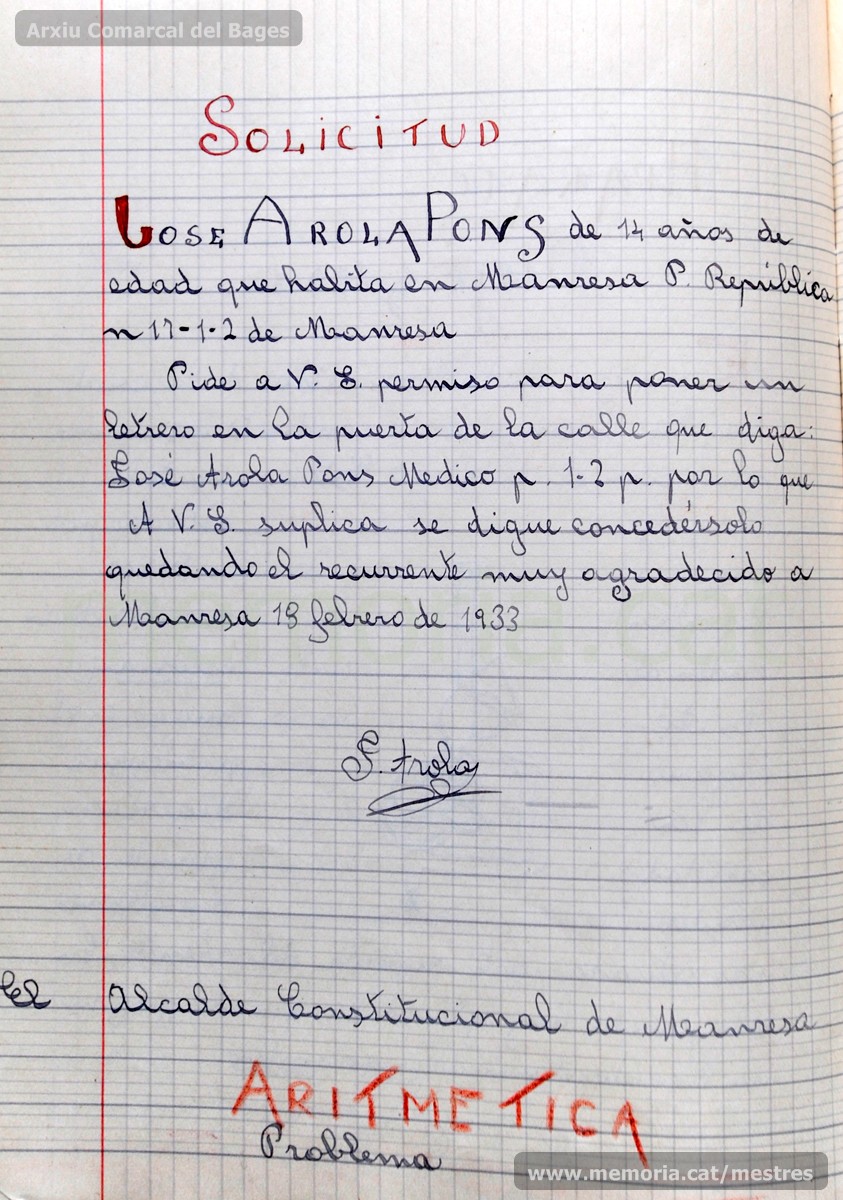 Arxiu Comarcal del Bages
SOLICITUD
JOSE AROLA PONS de 14 años de
edad que habita en Manresa P. República
n 17-1-2 de Manresa
Pide a V. S. permiso para poner un
letrero en la puerta de la calle que diga:
José Arola Pons Medico p. 1-2 p. por lo que
A V. S. suplica se digue concedérsolo
quedando el recurrente muy agradecido a
Manresa 18 febrero de 1933
J. Arola
El Alcalde Constitucional de Manresa
ARITMETICA
Problema
www.memoria.cat/mestres